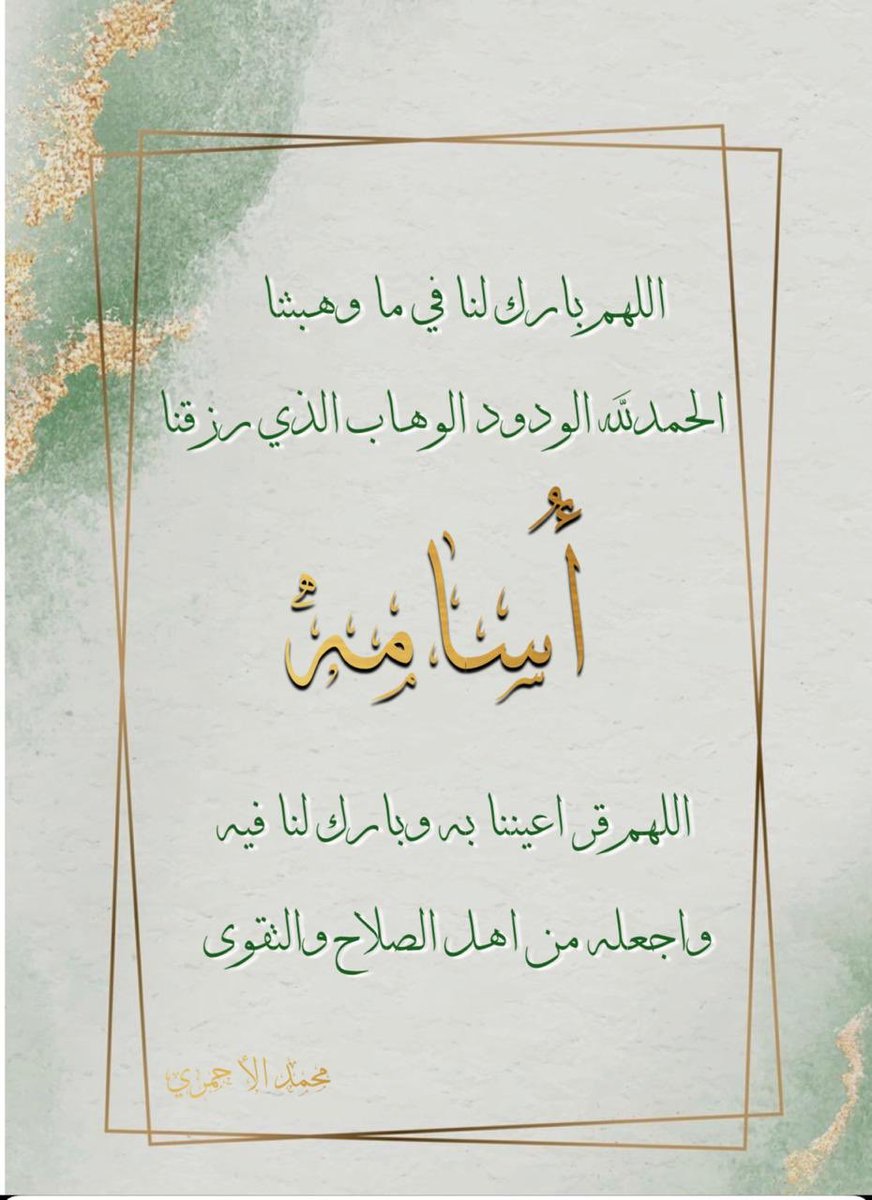 اللهم بارك لنا في ما وهبتنا
الحمدلله الودود الوهاب الذي رزقنا
أُسامه
اللهم قر اعيننا به وبارك لنا فيه
واجعله من اهل الصلاح والتقوى
محمد الأحمري